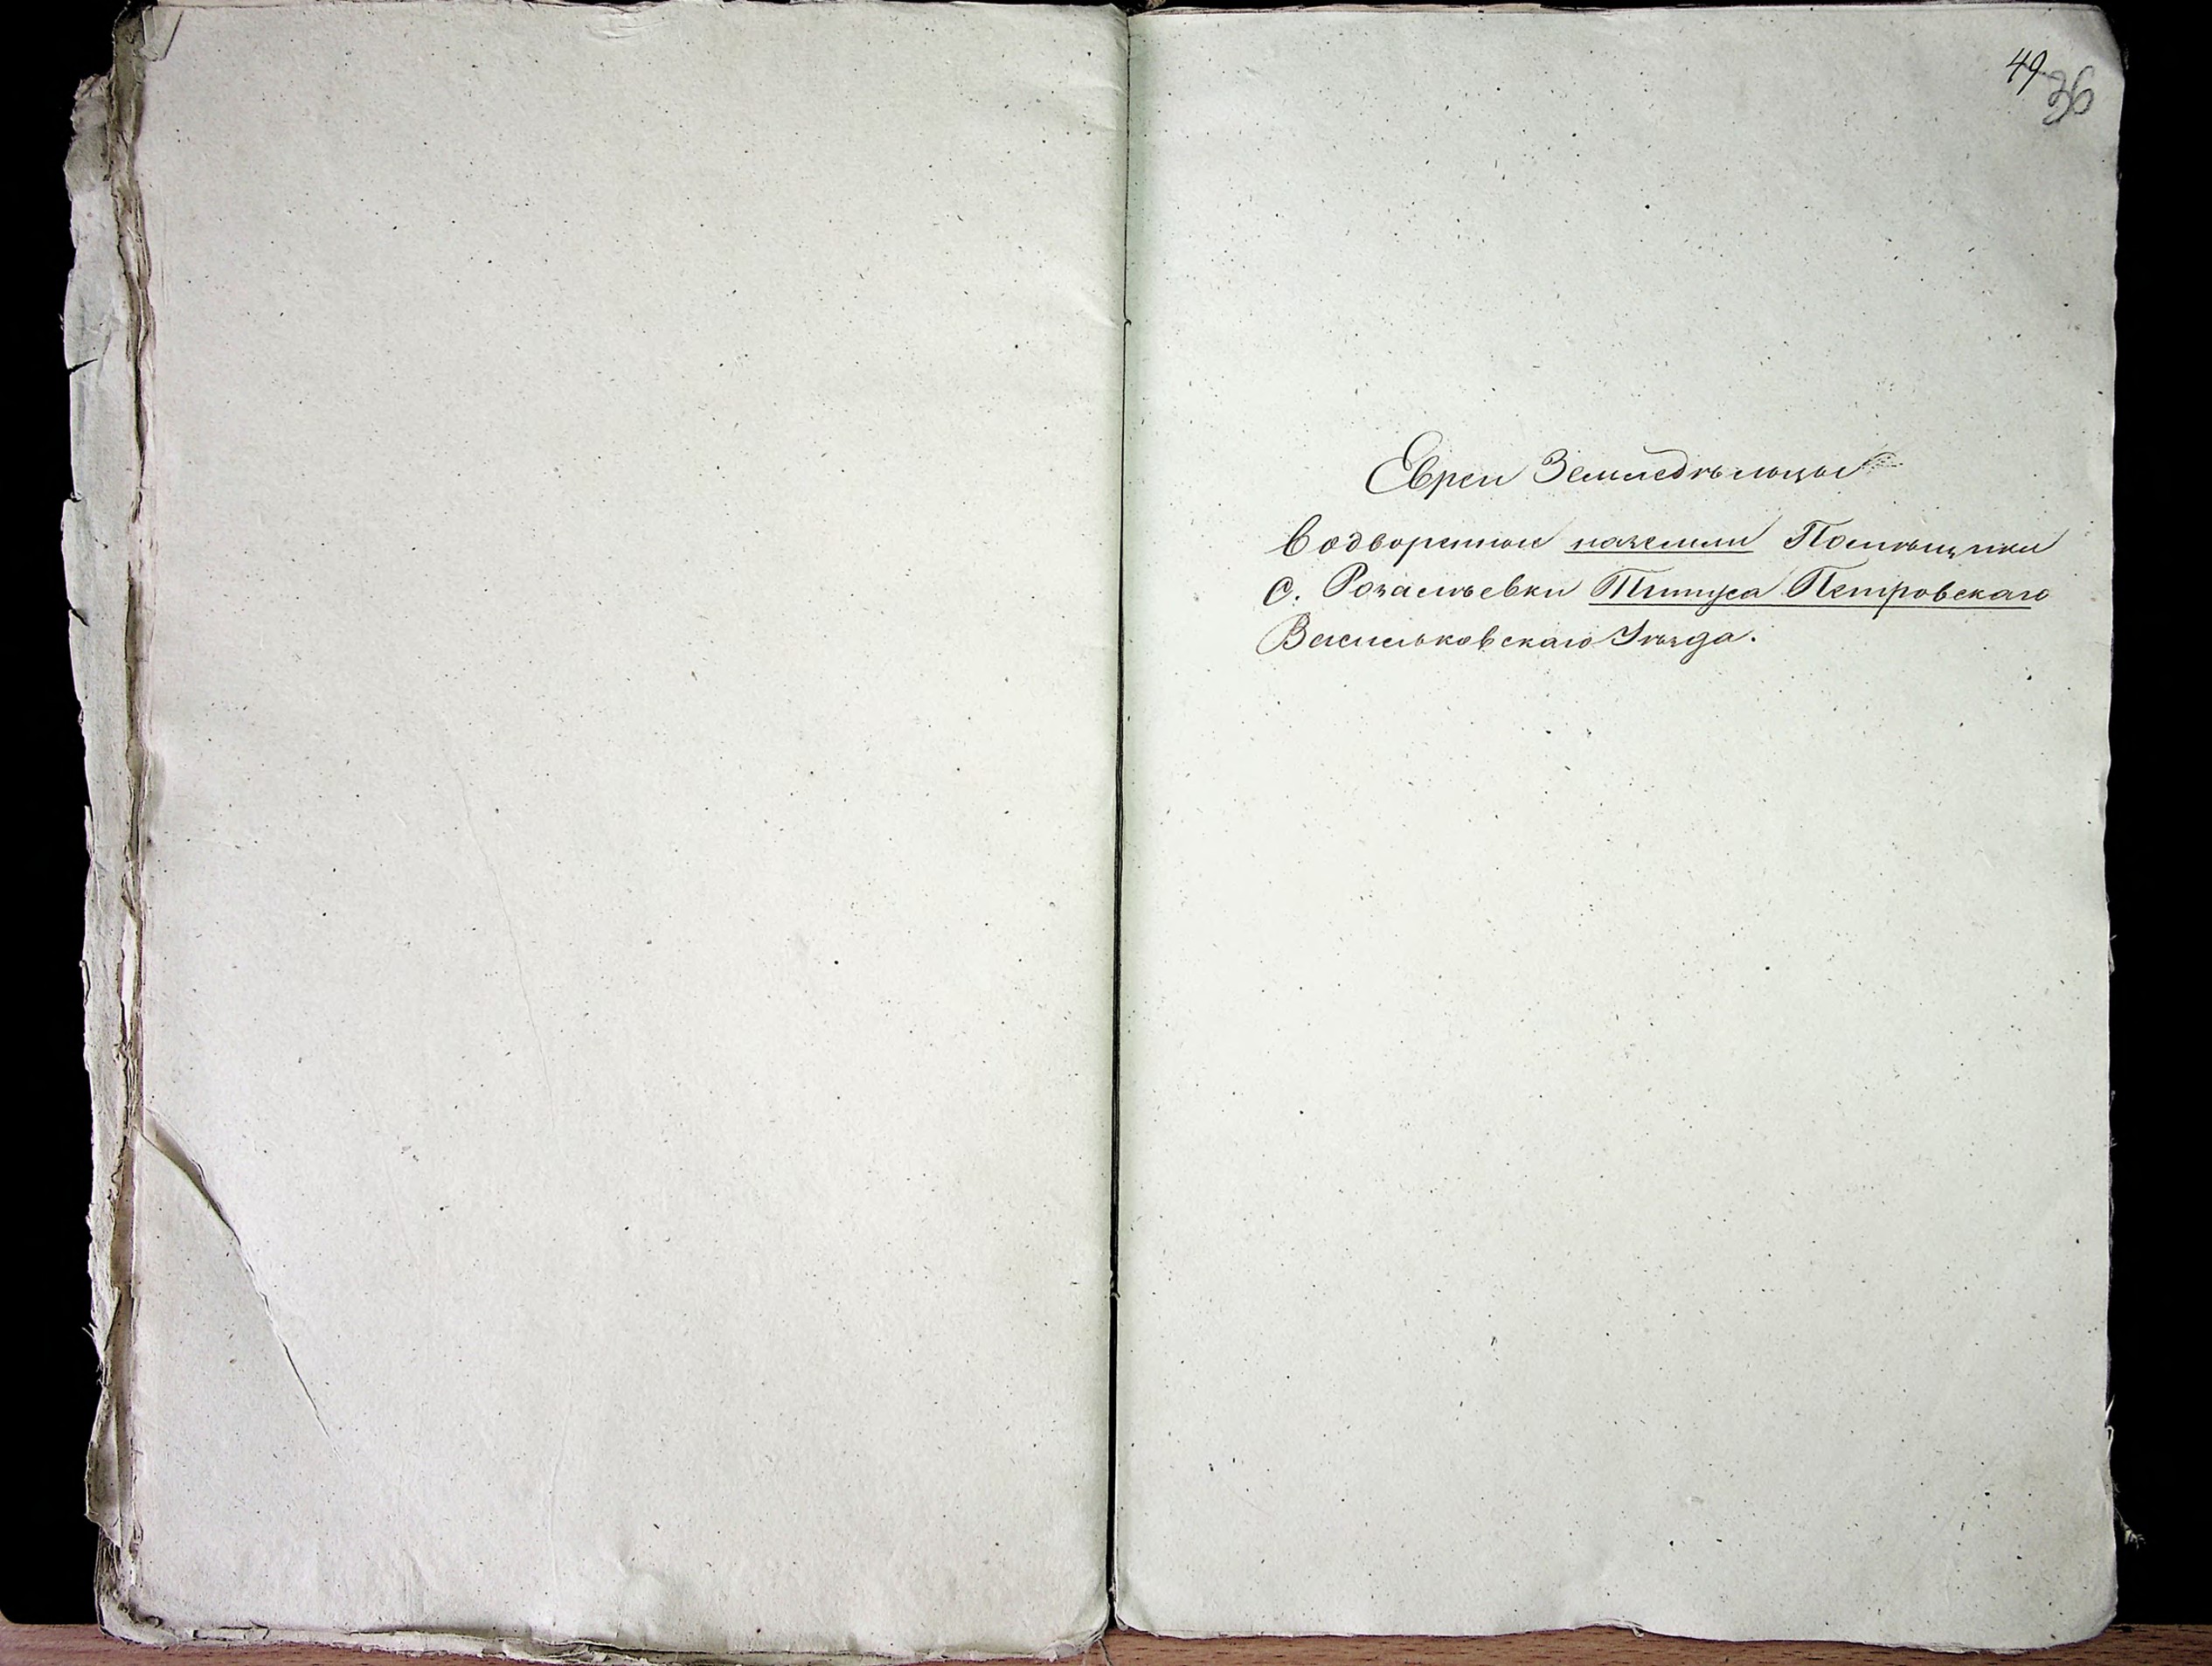 49
36
Евреи Земледѣльцы
Водворенные на земли Помѣщика
с. Розалѣевки Тытуса Петровскаго
Васильковскаго Уѣзда.